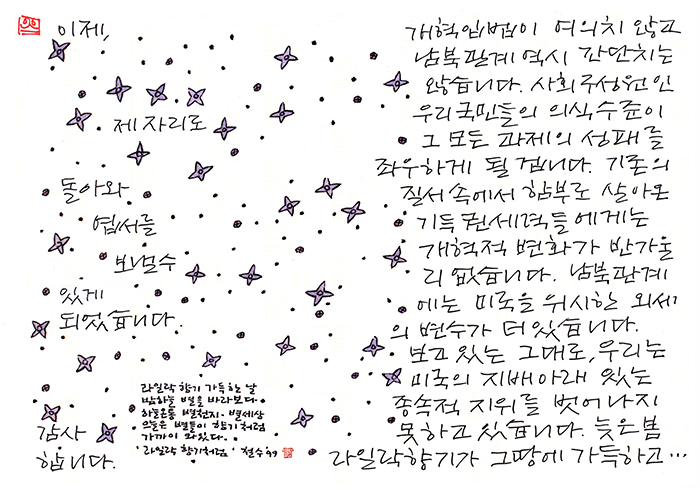 이제,
제 자리로
돌아와
엽서를
보낼 수
있게
되었습니다.
감사
합니다.
라일락 향기 가득한 날
밤하늘 별을 바라본다.
하늘은 온통 별천지. 별세상
오늘은 별들이 향기처럼
가까이 와있다.
'라일락 향기처럼' 철수 '99
개혁입법이 여의치 않고
남북관계 역시 간단치는
않습니다. 사회구성원인
우리 국민들의 의식수준이
그 모든 과제의 성패를
좌우하게 될 겁니다. 기존의
질서 속에서 함부로 살아온
기득권세력들에게는
개혁적 변화가 반가울
리 없습니다. 남북관계
에는 미국을 위시한 외세
의 변수가 더 있습니다.
보고 있는 그대로, 우리는
미국의 지배아래 있는
종속적 지위를 벗어나지
못하고 있습니다. 늦은 봄
라일락향기가 그 땅에 가득하고…